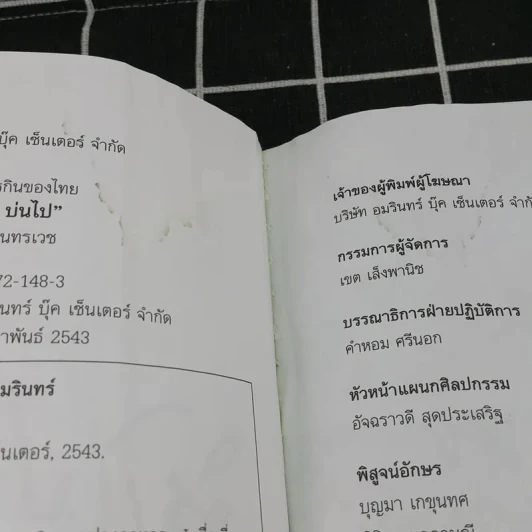 บุ๊ค เซ็นเตอร์ จำกัด
กินของไทย
บ่นไป”
นทรเวช
72-148-3
นทร์ บุ๊ค เซ็นเตอร์ จำกัด
าพันธ์ 2543
มรินทร์
นเตอร์, 2543.
เจ้าของผู้พิมพ์ผู้โฆษณา
บริษัท อมรินทร์ บุ๊ค เซ็นเตอร์ จำกั
กรรมการผู้จัดการ
เขต เล็งพานิช
บรรณาธิการฝ่ายปฏิบัติการ
คำหอม ศรีนอก
หัวหน้าแผนกศิลปกรรม
อัจฉราวดี สุดประเสริฐ
พิสูจน์อักษร
บุญมา เกขุนทศ